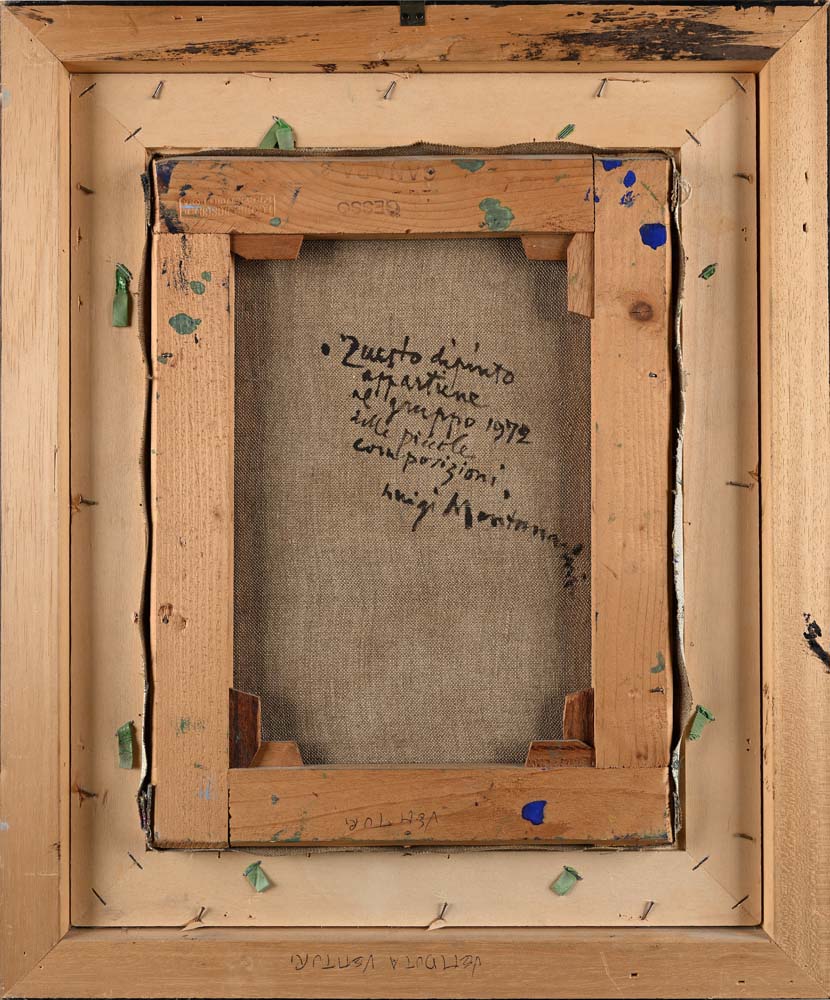 CANAPA
GESSO
. Questo dipinto
appartiene
al gruppo 1972
delle piccole
composizioni.
Luigi Montanarini
VENTURI
VENDUTA VENTURI